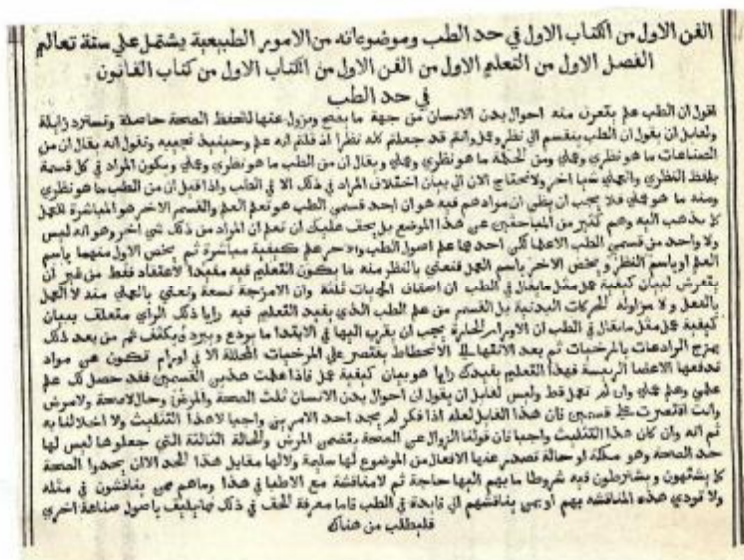 الفن الاول من الكتاب الاول في حد الطب وموضوعاته من الامور الطبيعية يشتمل علي ستة تعاليم
الفصل الاول من التعليم الاول من الفن الاول من الكتاب الاول من كتاب القانون
في حد الطب
اقول ان الطب علم يتعرف منه احوال بدن الانسان من جهة ما يصح ويزول عنها لتحفظ الصحة حاصلة وتسترد زايلة
ولقايل ان يقول ان الطب ينقسم الي نظر وعمل وانتم قد جعلتم كله نظرا اذ قلتم انه علم وحينيذ نجيبه ونقول انه يقال ان من
الصناعات ما هو نظري وعملي ومن الحكمة ما هو نظري وعملي ويقال ان من الطب ما هو نظري وعملي ويكون المراد في كل قسمة
بلفظ النظري والعملي شيا اخر ولا نحتاج الان الي بيان اختلاف المراد في ذلك الا في الطب واذا قيل ان من الطب ما هو نظري
ومنه ما هو عملي فلا يجب ان يظن ان مرادهم فيه هو ان احد قسمي الطب هو تعلم العلم والقسم الاخر هو المباشرة للعمل
كما يذهب اليه وهم كثير من الباحثين عن هذا الموضع بل يحق عليك ان تعلم ان المراد من ذلك شي اخر وهو انه ليس
ولا واحد من قسمي الطب الا علما لكن احدهما علم اصول الطب والاخر علم كيفية مباشرة ثم يخص الاول منهما باسم
العلم او باسم النظر ويخص الاخر باسم العمل فنعني بالنظر منه ما يكون التعليم فيه مفيدا لاعتقاد فقط من غير ان
يتعرض لبيان كيفية عمل مثل ما يقال في الطب ان اصناف الحميات ثلثة وان الامزجة تسعة ونعني بالعملي منه لا العمل
بالفعل ولا مزاولة الحركات البدنية بل القسم من علم الطب الذي يفيد التعليم فيه رايا ذلك الراي متعلق ببيان
كيفية عمل مثل ما يقال في الطب ان الاورام الحارة يجب ان يقرب اليها في الابتدا ما يردع ويبرد ويكثف ثم من بعد ذلك
يمزج الرادعات بالمرخيات ثم بعد الانتها الي الانحطاط يقتصر علي المرخيات المحللة الا في اورام تكون عن مواد
تدفعها الاعضا الرييسة فهذا التعليم يفيدك رايا هو بيان كيفية عمل فاذا علمت هذين القسمين فقد حصل لك علم
علمي وعلم عملي وان لم تعمل قط وليس لقايل ان يقول ان احوال بدن الانسان ثلث الصحة والمرض وحال لا صحة ولا مرض
وانت اقتصرت علي قسمين فان هذا القايل لعله اذا فكر لم يجد احد الامرين واجبا لا هذا التثليث ولا اخلالنا به
ثم انه وان كان هذا التثليث واجبا فان قولنا الزوال عن الصحة يتضمن المرض والحالة الثالثة التي جعلوها ليس لها
حد الصحة وهو ملكة او حالة تصدر عنها الافعال من الموضوع لها سليمة ولا لها مقابل هذا الحد الا ان يحدوا الصحة
كما يشتهون ويشترطون فيه شروطا ما بهم اليها حاجة ثم لا مناقشة مع الاطبا في هذا وما هم ممن يناقشون في مثله
ولا تودي هذه المناقشة بهم او بمن يناقشهم الي فايدة في الطب فاما معرفة الحق في ذلك فما يليق باصول صناعة اخري
فليطلب من هناك